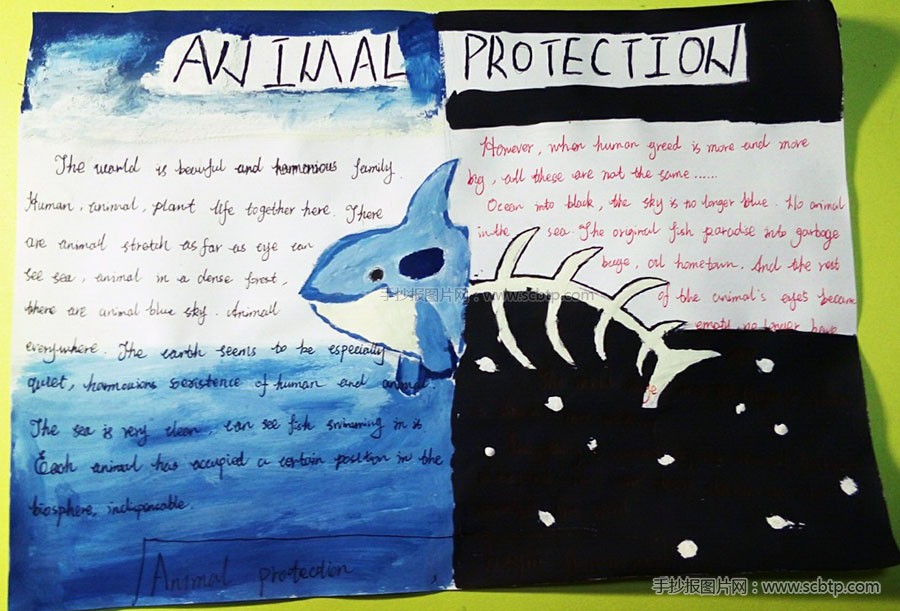 ANIMAL PROTECTION
The world is beuiful and harmonious family.
Human, animal, plant life together here. There
are animal stretch as far as eye can
see sea, animal in a dense forest,
there are animal blue sky. Animall
everywhere. The earth seems to be especially
quiet, harmonious soexistence of human and animal.
The sea is very clean, can see fish swimming in is
Each animal has occupied a certain position in the
biosphere, indispensable.
Animal protection
However, when human greed is more and more
big, all these are not the same......
Ocean into black, the sky is no longer blue. No animal
in the sea. The original fish paradise into garbage
huge, oil hometown. And the rest
of the animal's eyes became
empty, no longer have
手抄报图片网：www.scbtp.com
手抄报图片网：www.scbtp.com